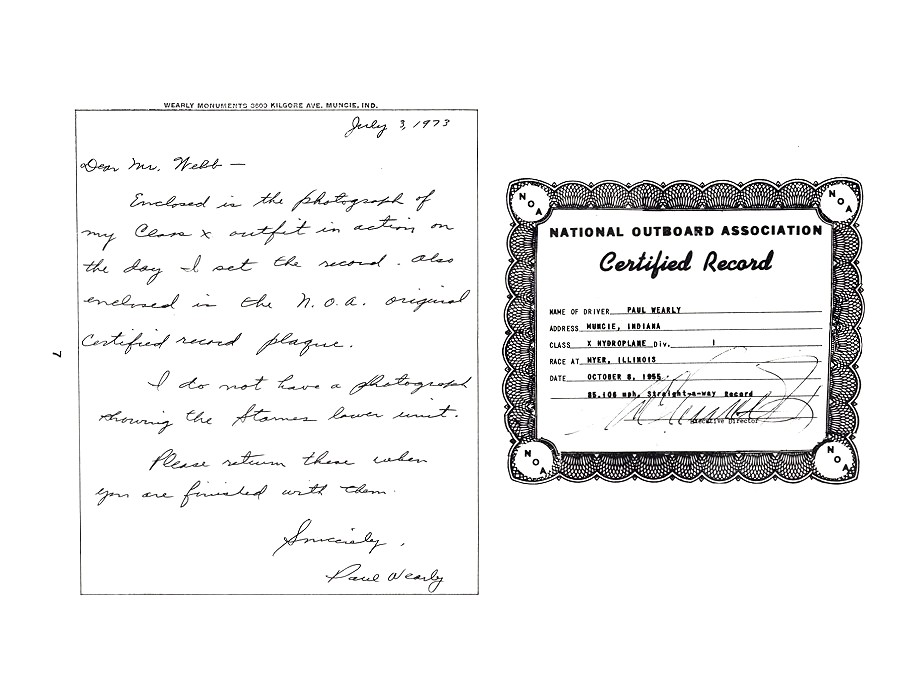 WEARLY MONUMENTS 3600 KILGORE AVE. MUNCIE, IND.
July 3, 1973
Dear Mr. Webb —
Enclosed is the photograph of
my Class X outfit in action on
the day I set the record. Also
enclosed is the N.O.A. original
Certified record plaque.
I do not have a photograph
showing the Stames lower unit.
Please return these when
you are finished with them.
Sincerely,
Paul Wearly
7
NOA
NOA
NATIONAL OUTBOARD ASSOCIATION
Certified Record
NAME OF DRIVER PAUL WEARLY
ADDRESS MUNCIE, INDIANA
CLASS X HYDROPLANE Div. I
RACE AT MYER, ILLINOIS
DATE OCTOBER 8, 1955
85.106 mph. Straight-a-way Record
Executive Director
NOA
NOA